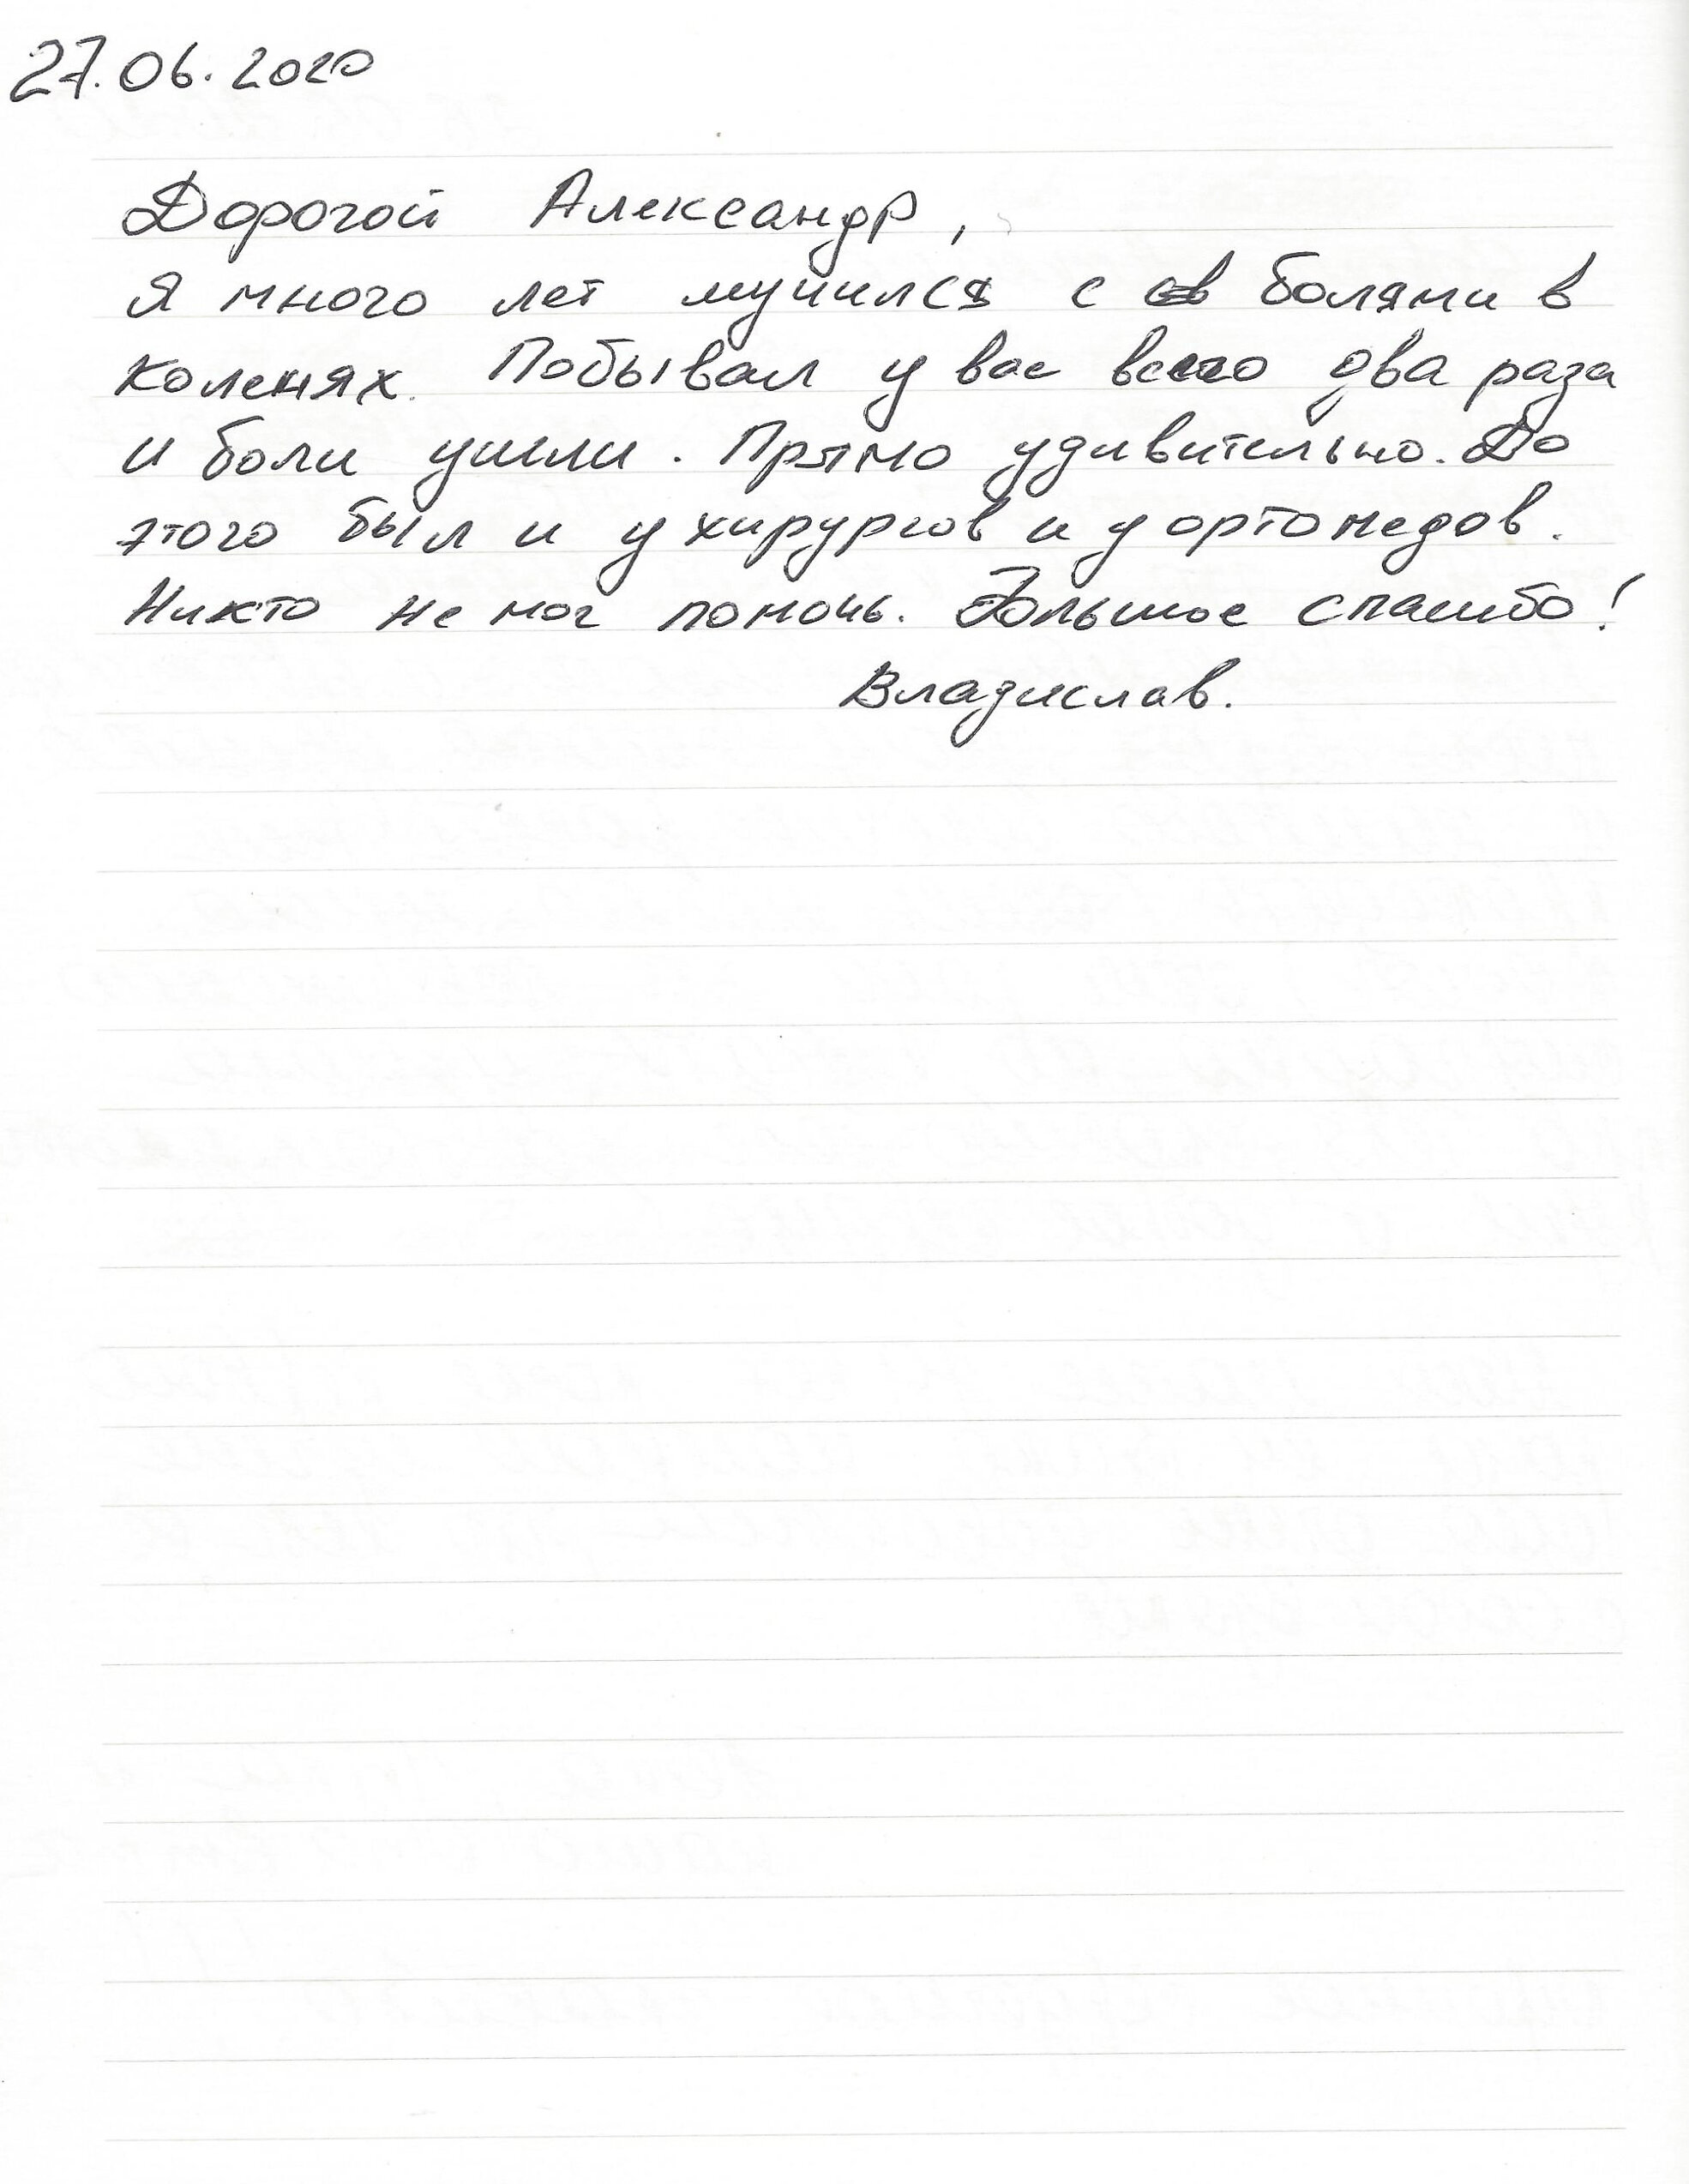 27.06.2020
Дорогой Александр,
Я много лет мучился с болями в
коленях. Побывал у вас всего два раза
и боли ушли. Прямо удивительно. До
этого был и у хирургов и у ортопедов.
Никто не мог помочь. Большое спасибо!
Владислав.